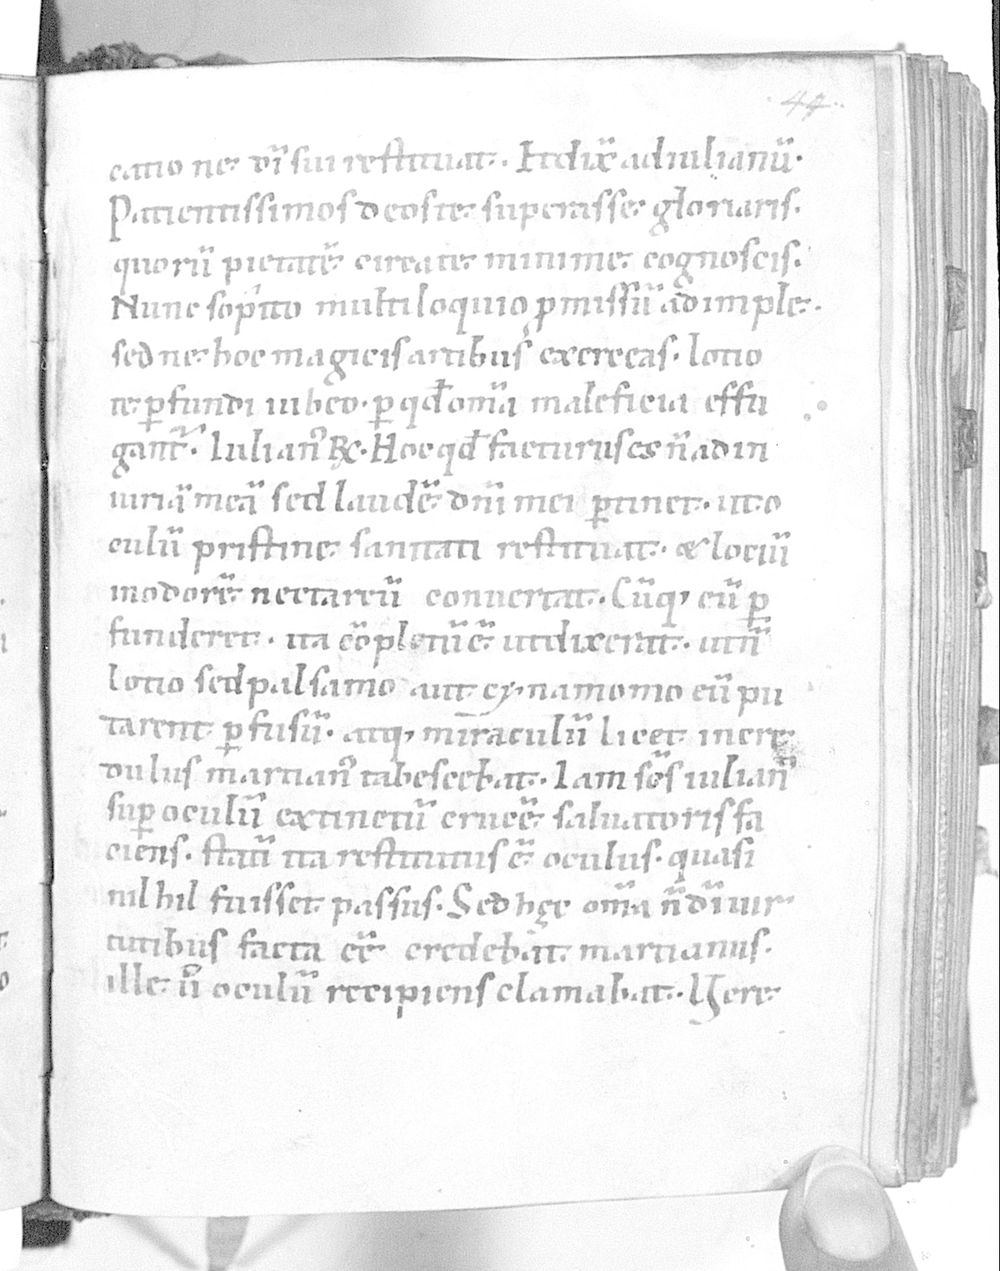 44
catio ne d̄i sui restituat. Et dix̄ ad iulianū.
Patientissimos deos te superasse gloriaris.
quorū pietatē circa te minime cognoscis.
Nunc sopito multiloquio p̄missū adimple.
sed ne hoc magicis artibus exerceas. lotio
te ꝑfundi iubeo. ꝑ qd̄ om̄a maleficia effu
gant̄. Iulian᾽ R̄. Hoc qd̄ facturus es n̄ ad in
iuriā meā sed laudē dn̄i mei ꝑtinet. ut o
culū pristine sanitati restituat. & lotiū
in odorē nectareū conuertat. Cūq, eū ꝑ
funderet. ita cōpletū ē ut dixerat. ut n̄
lotio sed palsamo aut cynamomo eū pu
tarent ꝑfusū. atq, miraculū licet incre
dulus martian᾽ tabescebat. Iam sc̄s iulian᾽
suꝑ oculū extinctū crucē saluatoris fa
ciens. statī ita restitutus ē oculus. quasi
nil hil fuisset passus. Sed hęc om̄a n̄ d̄i uir
tutibus facta eē credebat martianus.
ille ū oculū recipiens clamabat. Uere